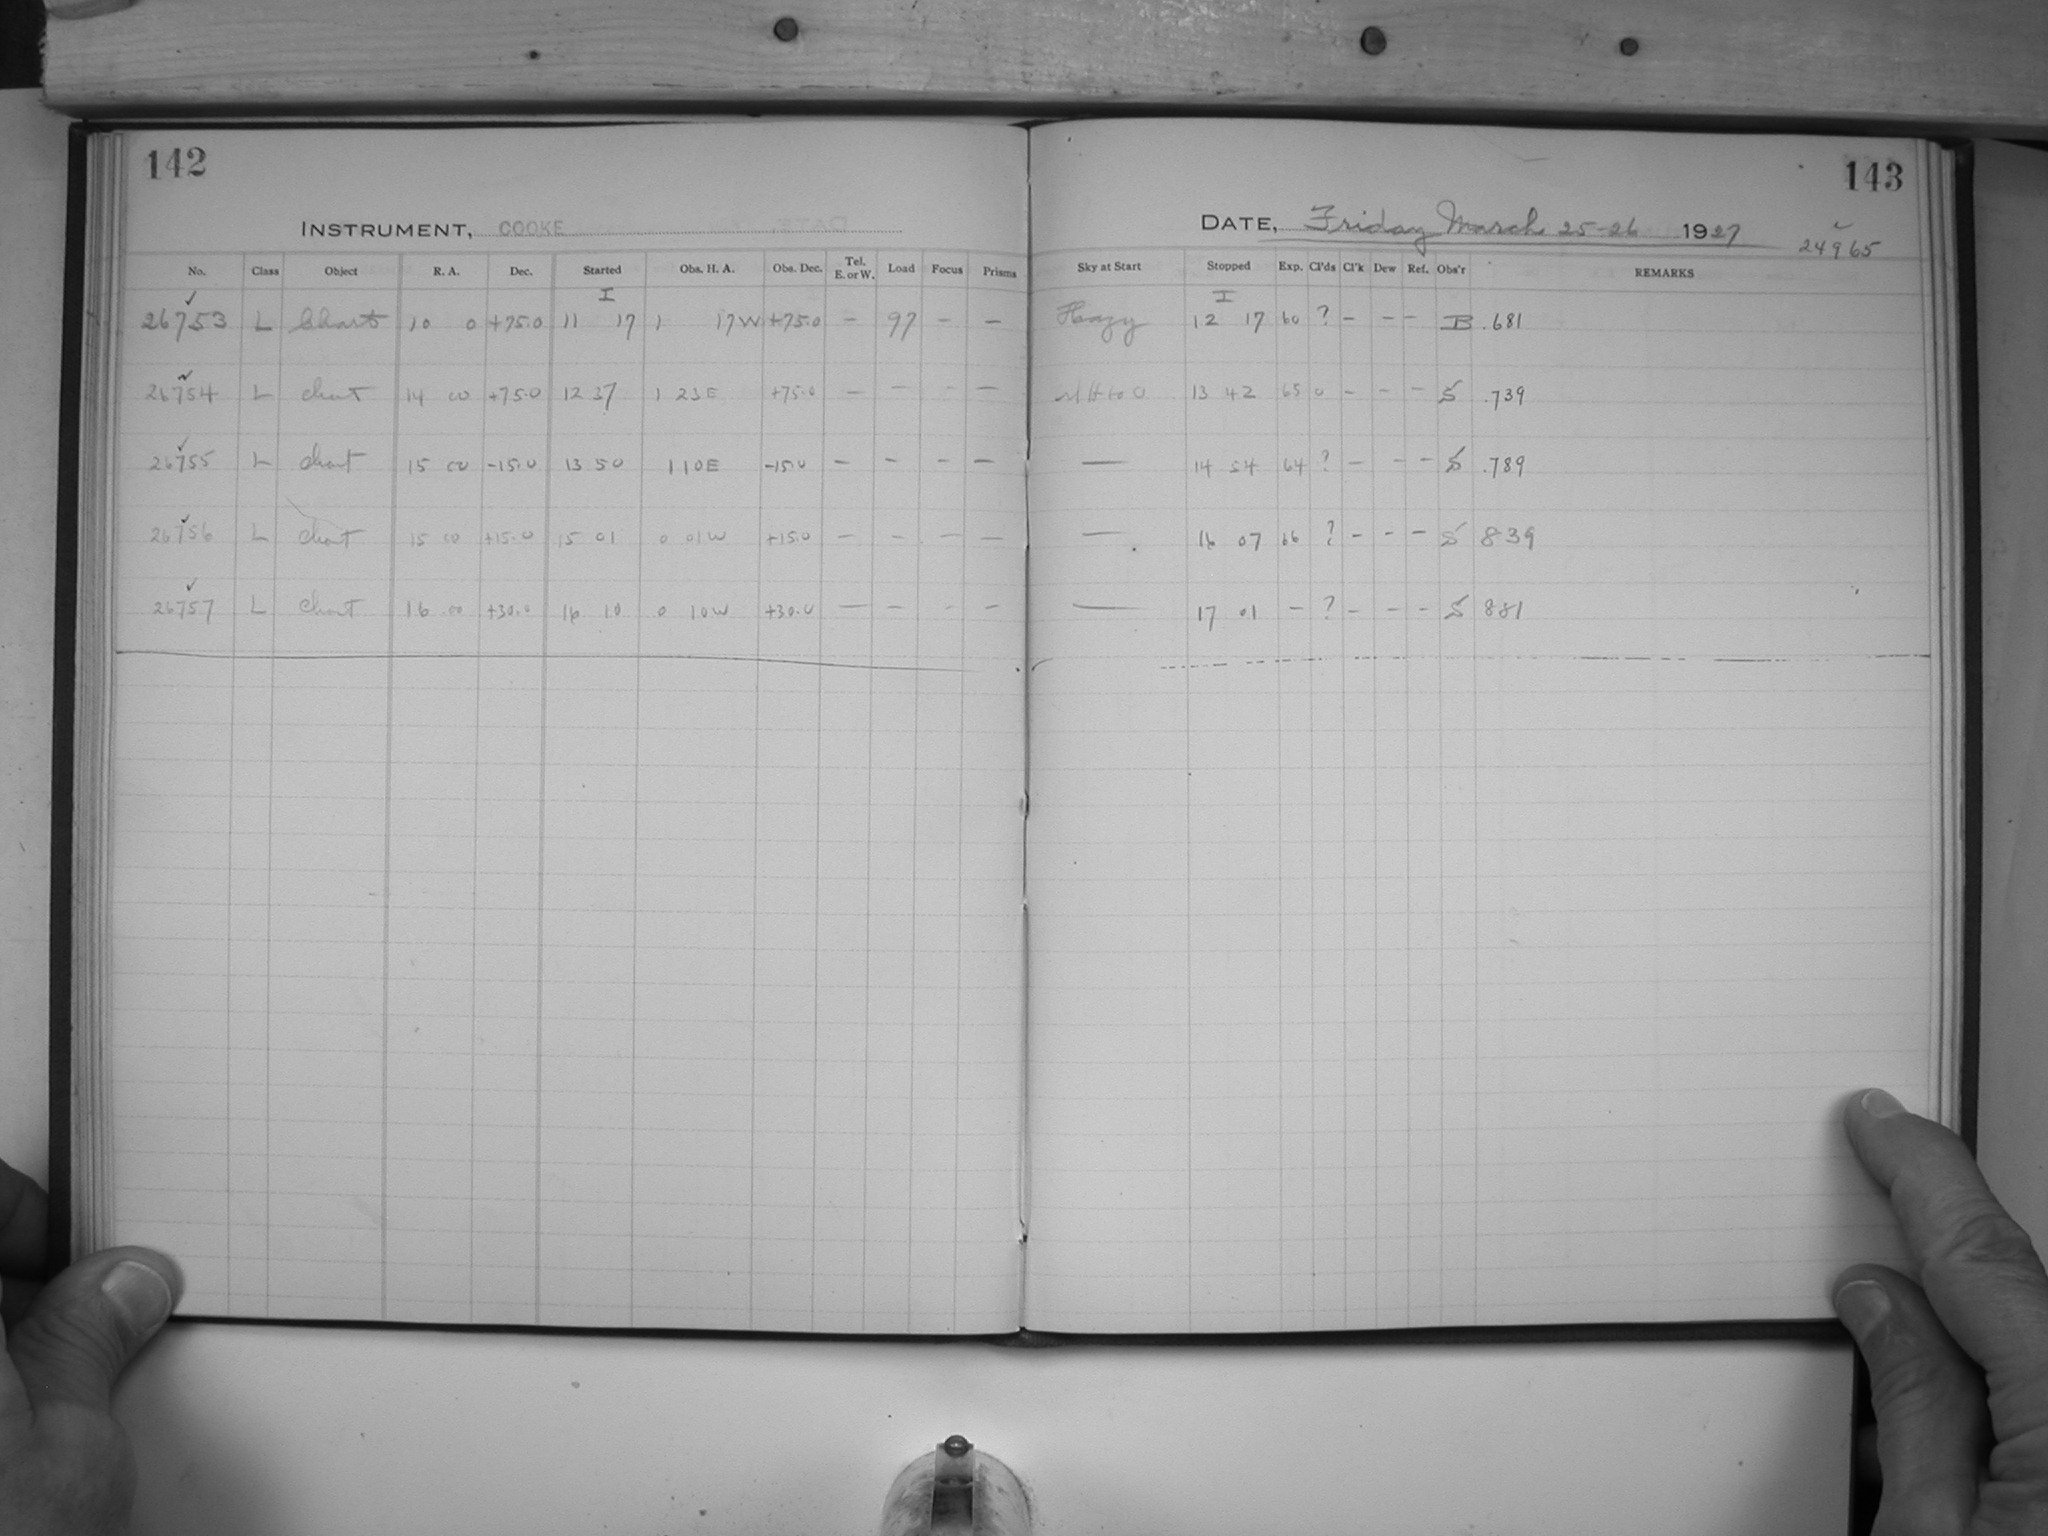 142
143
INSTRUMENT, COOKE
DATE, Friday March 25-26 1927
24965
No. Class Object R. A. Dec. Started Obs. H. A. Obs. Dec. Tel. E. or W. Load Focus Prisms Sky at Start Stopped Exp. Cl'ds Cl'k Dew Ref. Obs'r REMARKS
I I
26753 L Chart 10 0 +75.0 11 17 1 17W +75.0 – 97 – – Hazy 12 17 60 ? – – – B .681
26754 L chart 14 00 +75.0 12 37 1 23E +75.0 – – – – 13 42 65 0 – – – S .739
26755 L chart 15 00 -15.0 13 50 1 10E -15.0 – – – – — 14 54 64 ? – – – S .789
26756 L chart 15 00 +15.0 15 01 0 01W +15.0 – – – – — 16 07 66 ? – – – S 839
26757 L chart 16 00 +30.0 16 10 0 10W +30.0 – – – – — 17 01 – ? – – – S 881